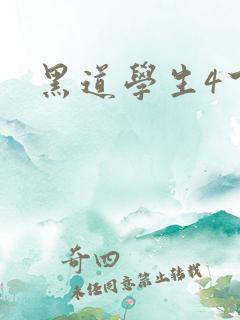 黑道學生4
奇四
未经同意禁止转载